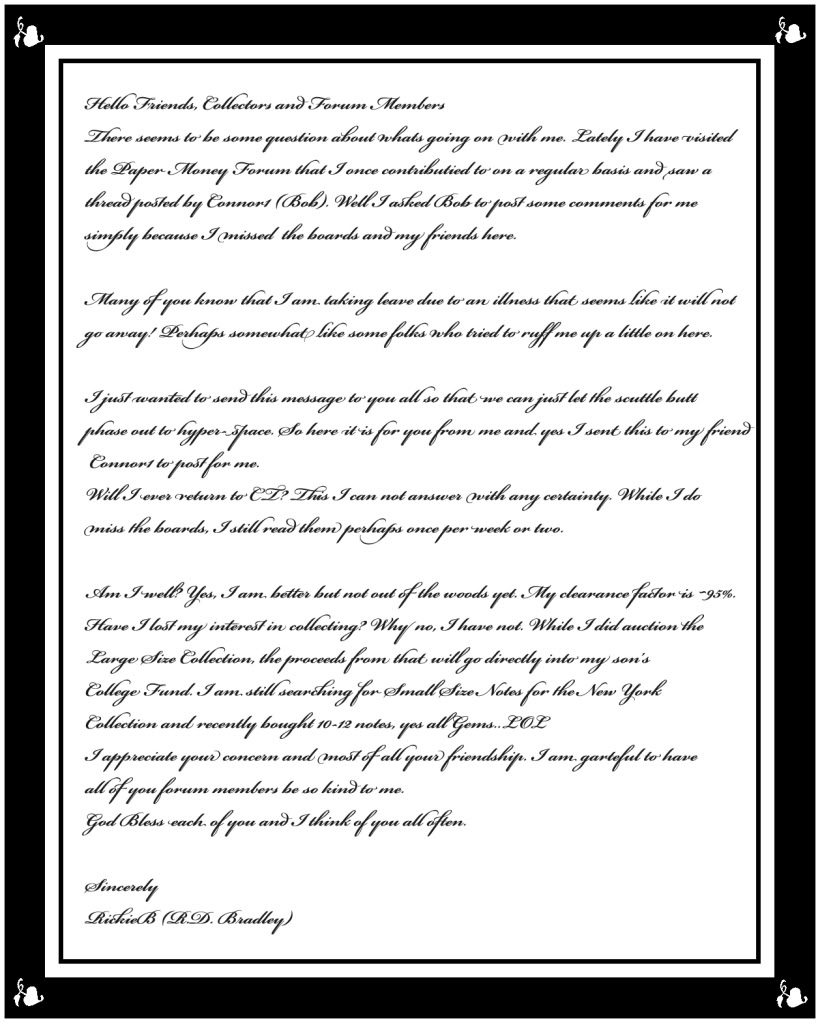 Hello Friends, Collectors and Forum Members
There seems to be some question about whats going on with me. Lately I have visited
the Paper Money Forum that I once contributied to on a regular basis and saw a
thread posted by Connor1 (Bob). Well I asked Bob to post some comments for me
simply because I missed the boards and my friends here.
Many of you know that I am taking leave due to an illness that seems like it will not
go away! Perhaps somewhat like some folks who tried to ruff me up a little on here.
I just wanted to send this message to you all so that we can just let the scuttle butt
phase out to hyper-space. So here it is for you from me and yes I sent this to my friend
Connor1 to post for me.
Will I ever return to CT? This I can not answer with any certainty. While I do
miss the boards, I still read them perhaps once per week or two.
Am I well? Yes, I am better but not out of the woods yet. My clearance factor is ~95%.
Have I lost my interest in collecting? Why no, I have not. While I did auction the
Large Size Collection, the proceeds from that will go directly into my son's
College Fund. I am still searching for Small Size Notes for the New York
Collection and recently bought 10-12 notes, yes all Gems...LOL
I appreciate your concern and most of all your friendship. I am garteful to have
all of you forum members be so kind to me.
God Bless each of you and I think of you all often.
Sincerely
RickieB (R.D. Bradley)